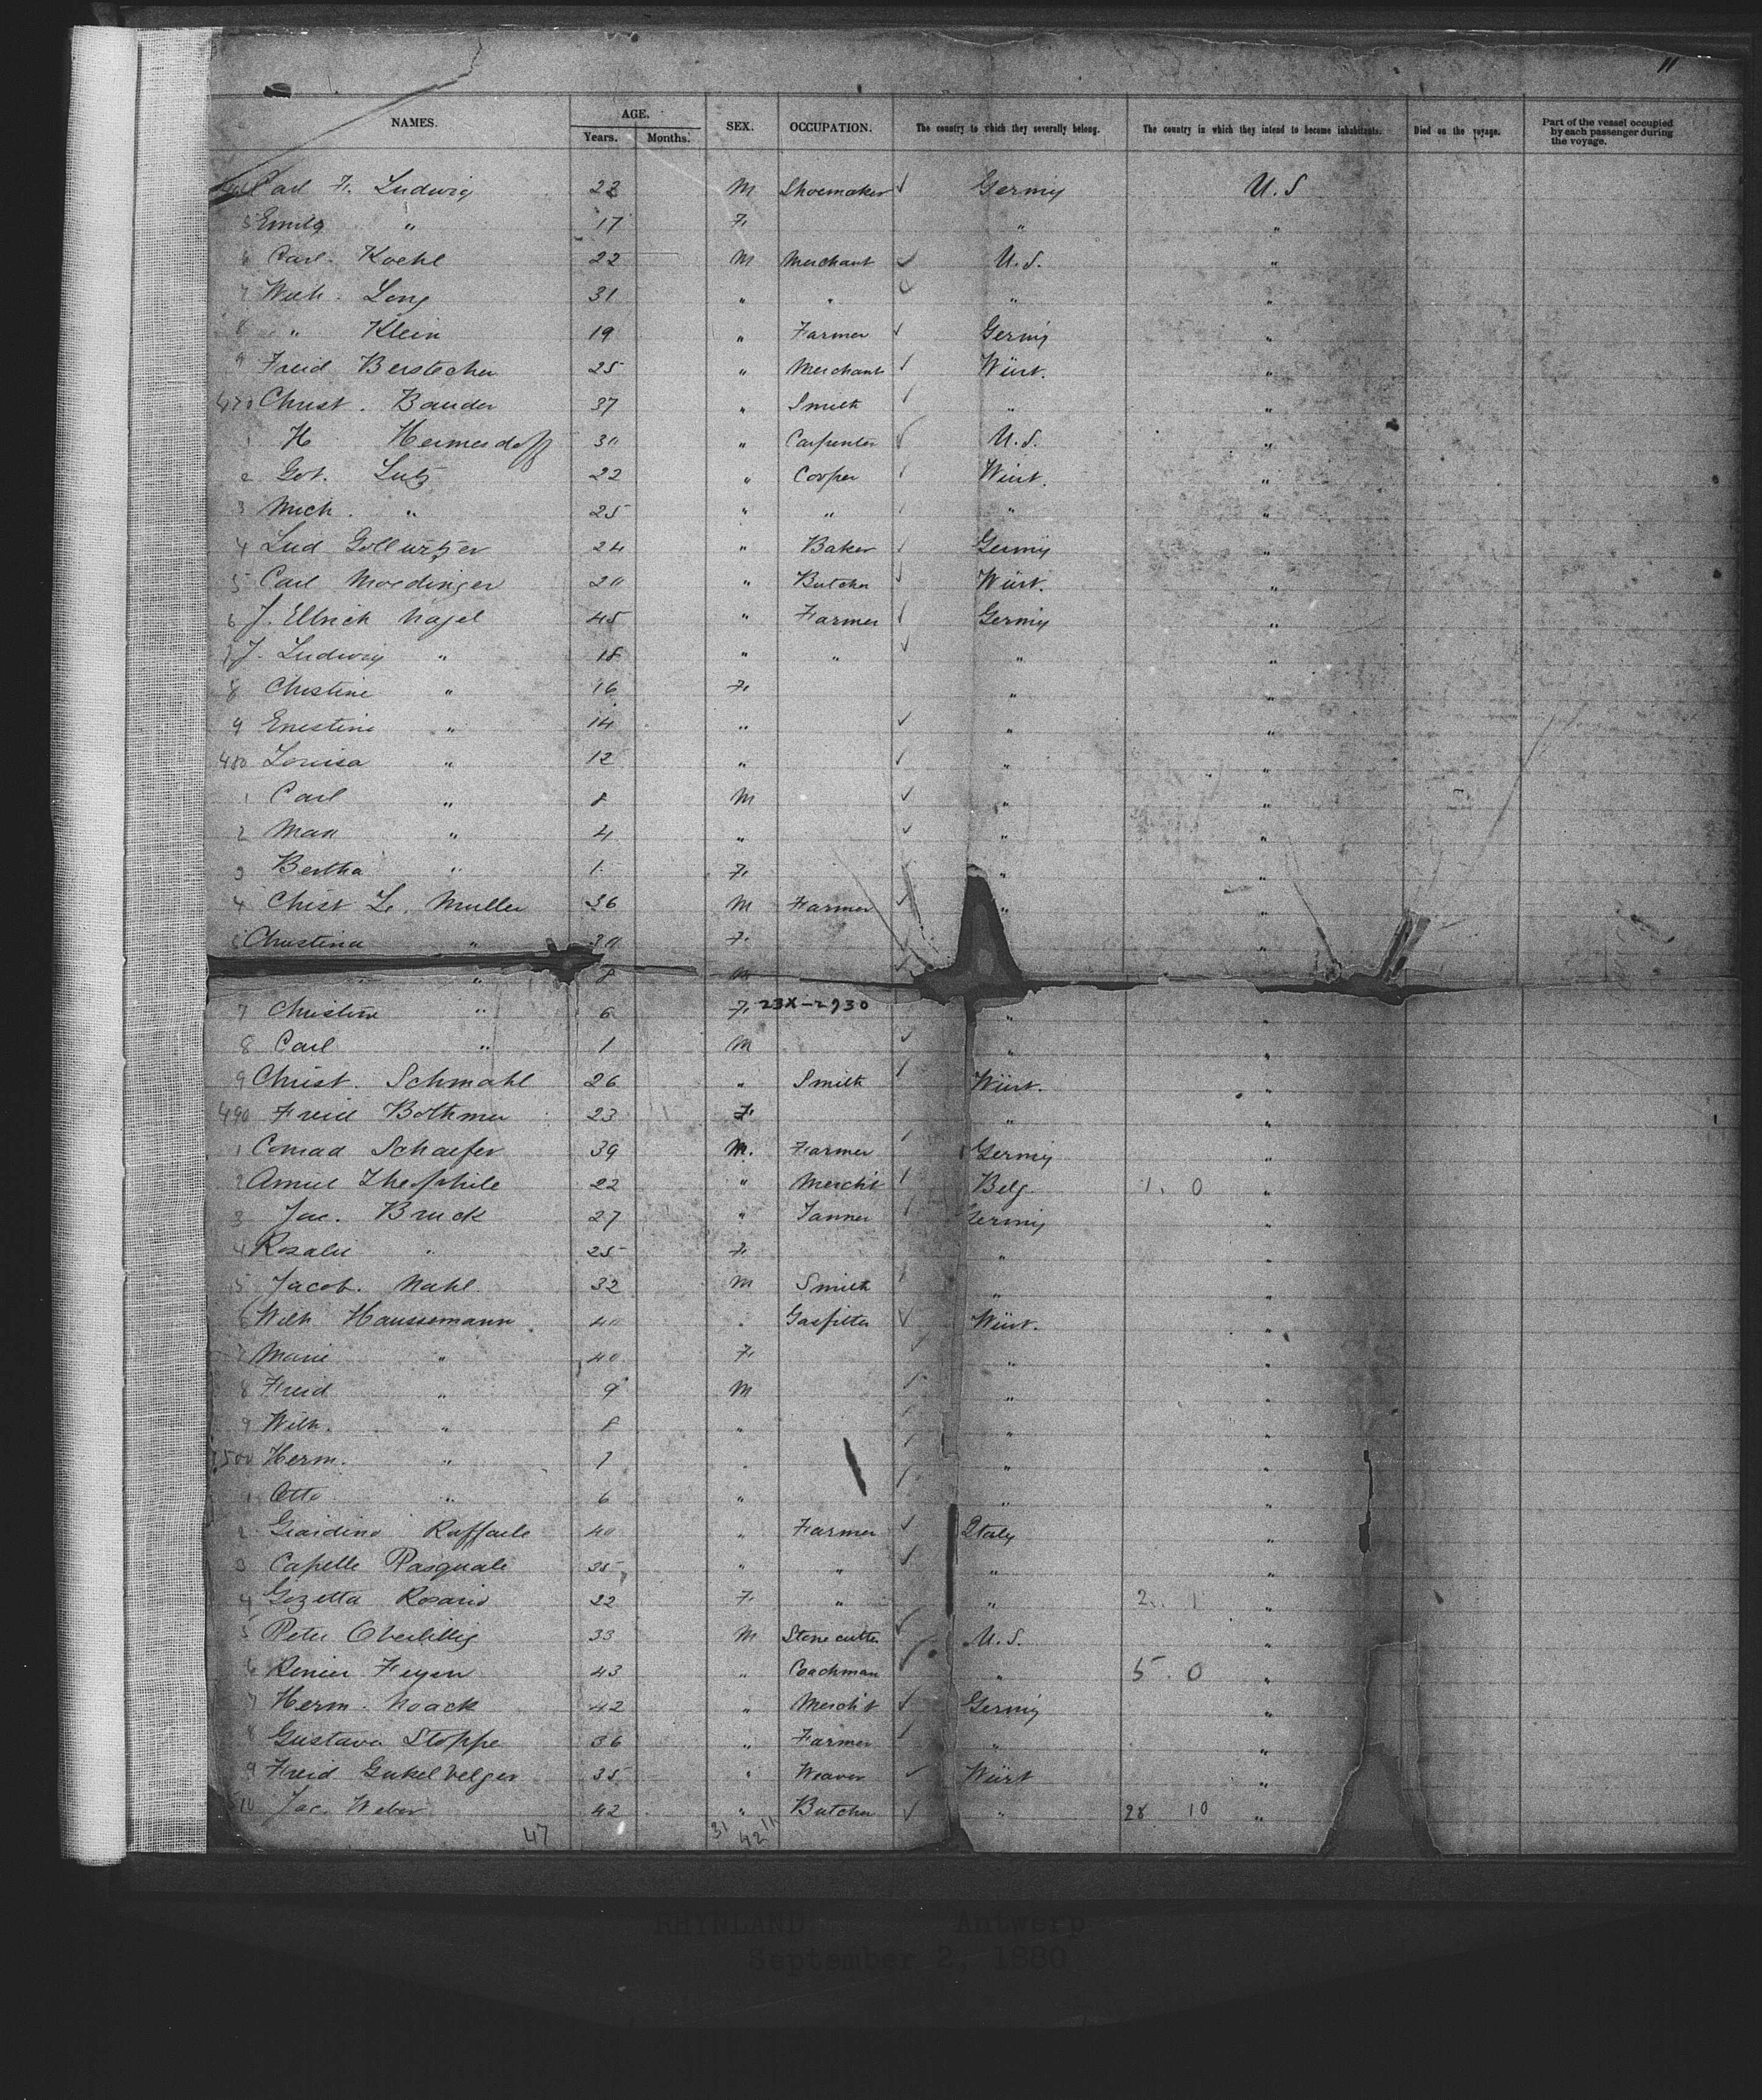 11
NAMES. AGE. SEX. OCCUPATION. The country to which they severally belong. The country in which they intend to become inhabitants. Died on the voyage. Part of the vessel occupied by each passenger during the voyage.
Years. Months.
Carl F. Ludwig 22 M Shoemaker ✓ Germy U.S
5 Emily " 17 F. " "
6 Carl. Koehl 22 M Merchant ✓ U.S. "
7 Wilh. Long 31 " " ✓ " "
8 " Klein 19 " Farmer ✓ Germy "
9 Freid Berstecher 25 " Merchant ✓ Würt. "
470 Christ. Bauder 37 " Smith ✓ " "
1 H Hermesdoff 30 " Carpenter ✓ U.S. "
2 Got. Lutz 22 " Cooper ✓ Würt. "
3 Mich. " 25 " " ✓ " "
4 Lud 24 " Baker ✓ Germy "
5 Carl Moedinger 20 " Butcher ✓ Würt. "
6 J. Ellrich Nagel 45 " Farmer ✓ Germy "
7 J. Ludwig " 18 " " ✓ " "
8 Christine " 16 F. " "
9 Ernestine " 14 " ✓ " "
480 Louisa " 12 " ✓ " "
1 Carl " 8 M ✓ " "
2 Max " 4 " ✓ " "
3 Bertha " 1 F. ✓ " "
4 Christ L. Muller 36 M Farmer ✓ " "
5 Christina " 30 F. "
" 8 M
7 Christine " 6 F. 23X-2930 " "
8 Carl " 1 M ✓ " "
9 Christ. Schmahl 26 " Smith ✓ Würt. "
490 Bothmer 23 F " "
1 Conrad Schaefer 39 M. Farmer ✓ Germy "
2 Theophile 22 " Merch't ✓ Belg. 1. 0 "
3 Jac. Bruck 27 " Tanner ✓ Germy "
4 Rosalie " 25 F. " "
5 Jacob. Nahl 32 M Smith ✓ " "
6 Wilh Haussemann 40 " Gasfitter ✓ Würt. "
7 Marie " 40 F. ✓ " "
8 Freid " 9 M ✓ " "
9 Wilh. " 8 " ✓ " "
500 Herm. " 7 " ✓ " "
1 Otto " 6 " ✓ " "
2 Giardino Raffaele 40 " Farmer ✓ Italy "
3 Capelle Pasquale 25 " " ✓ " "
4 Gozetta Rosario 22 F. " " 2. 1 "
5 Peter Oberbillig 33 M Stone cutter ✓ U.S. "
6 Renier Feyen 43 " Coachman ✓ " 5. 0 "
7 Herm. Noack 42 " Merch't ✓ Germy "
8 Gustave Stoppe 36 " Farmer ✓ " "
9 Freid 35 " Weaver ✓ Würt "
510 Jac. Weber 42 " Butcher ✓ " 28 10 "
47 31 11
42
RHYNLAND Antwerp
September 2, 1880